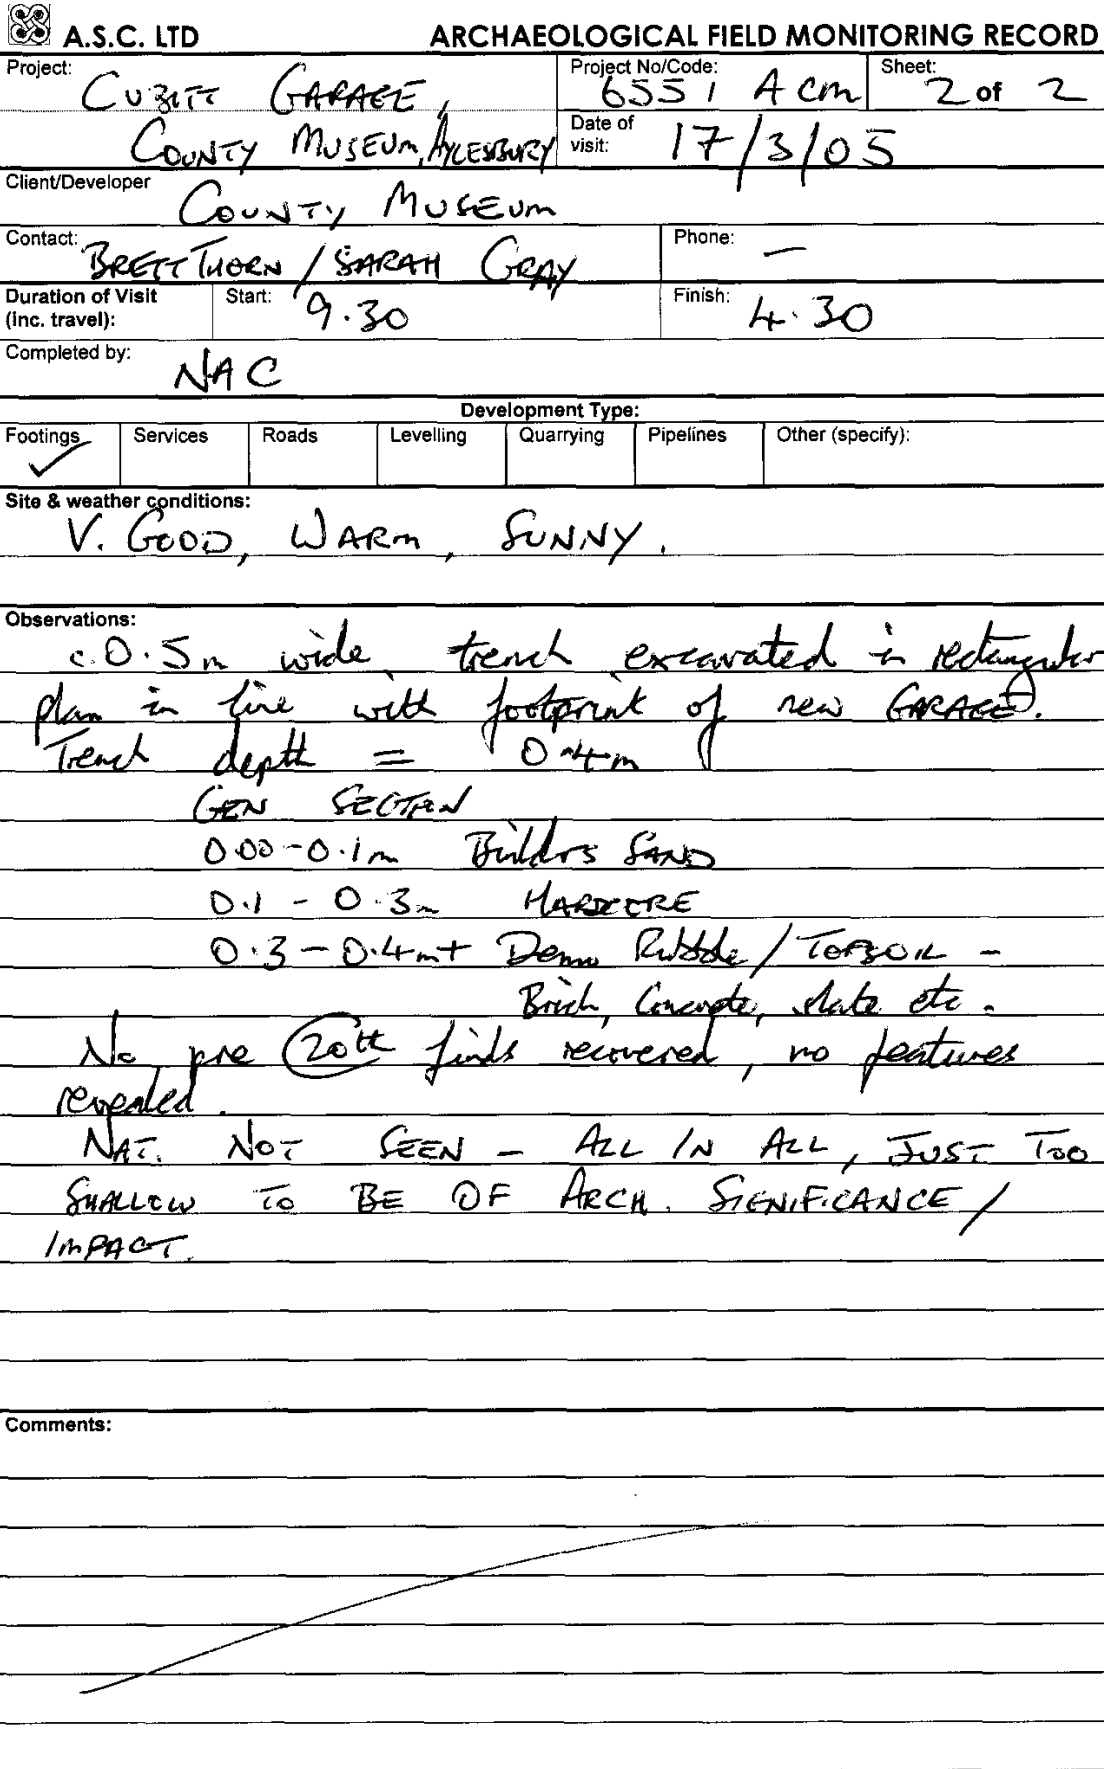 A.S.C. LTD ARCHAEOLOGICAL FIELD MONITORING RECORD
Project: CUBITT GARAGE, Project No/Code: 6551 ACM Sheet: 2 of 2
COUNTY MUSEUM, AYLESBURY Date of visit: 17/3/05
Client/Developer COUNTY MUSEUM
Contact: BRETT THORN / SARAH GRAY Phone: —
Duration of Visit (inc. travel): Start: 9.30 Finish: 4.30
Completed by: NAC
Development Type:
Footings ✓ Services Roads Levelling Quarrying Pipelines Other (specify):
Site & weather conditions:
V. GOOD, WARM, SUNNY.
Observations:
c. 0.5m wide trench excavated in rectangular
plan in line with footprint of new GARAGE.
Trench depth = 0.4m
GEN SECTION
0.00-0.1m Builders SAND
0.1 - 0.3m HARDCORE
0.3 - 0.4m+ Demo Rubble / TOPSOIL -
Brick, Concrete, slate etc.
No pre 20th finds recovered, no features
revealed.
NAT. NOT SEEN - ALL IN ALL, JUST TOO
SHALLOW TO BE OF ARCH. SIGNIFICANCE /
IMPACT.
Comments: